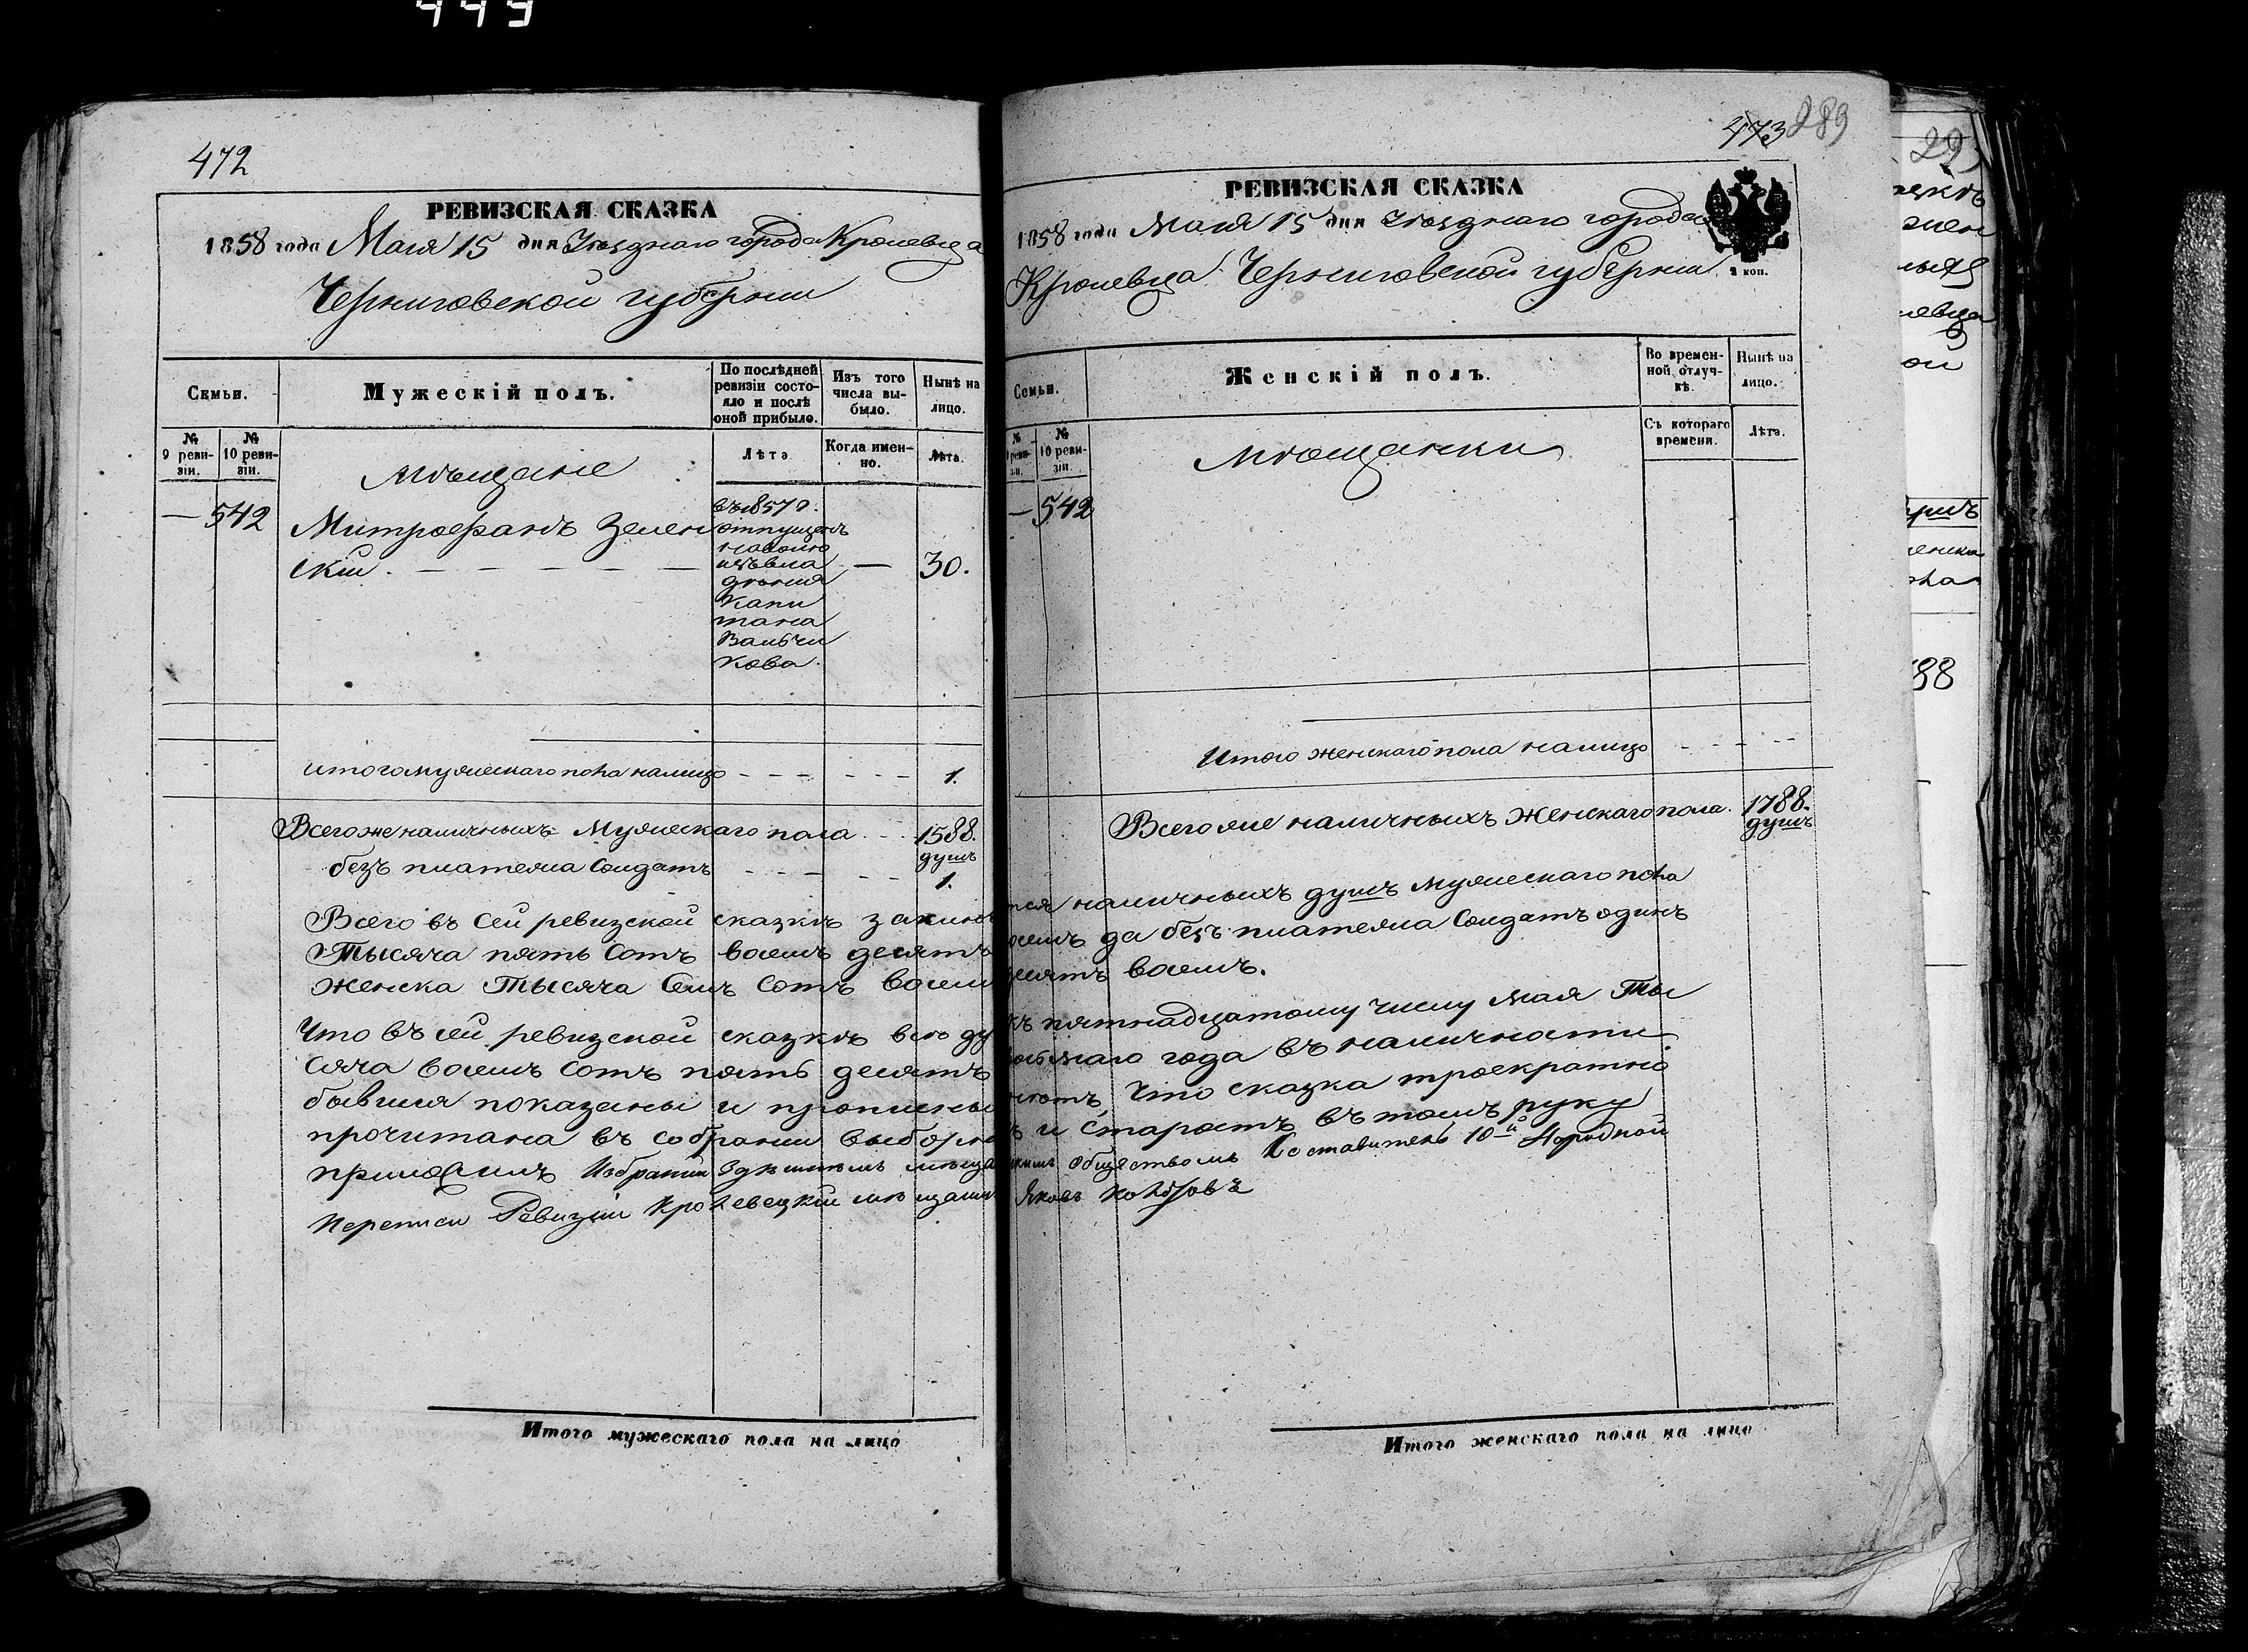 449
472
РЕВИЗСКАЯ СКАЗКА
1858 года Маія 15 дня Уѣзднаго города Кролевца
Черниговской губерніи
Семьи.
Мужескій полъ.
По послѣдней ревизіи состояло и послѣ оной прибыло.
Изъ того числа выбыло.
Нынѣ на лицо.
№ 9 ревизіи.
№ 10 ревизіи.
Лѣта
Когда именно.
Лѣта.
Мѣщане
— 542
Митрофанъ Зелен
скій. — — — — —
въ 1857 г.
отпущенъ
наволю
изъ вла
дѣнія
Капи
тана
Вальчи
кова.
—
30.
Итого мужескаго пола налицо - - - - - - 1.
Всего же наличныхъ Мужескаго пола - - 1588.
душъ
безъ платежа Солдатъ - - - - - 1.
Всего въ сей ревизской сказкѣ заключ
Тысяча пять Сотъ восемь десятъ
женска Тысяча Семь Сотъ восем
Что въ сей ревизской сказкѣ все ду
сяча восемь сотъ пять десятъ
бывшія показаны и пропис
прочитана въ собраніи выборн
приложилъ Избраний Здѣшнимъ мѣща
Переписи Ревизіи Кролевецкій мѣщанин
Итого мужескаго пола на лицо
473 289
РЕВИЗСКАЯ СКАЗКА
1858 года Маія 15 дня Уѣзднаго города
Кролевца Черниговской губерніи
2 коп.
Семьи.
Женскій полъ.
Во временной отлучкѣ.
Нынѣ на лицо.
№ 9 ревизіи.
№ 10 ревизіи.
Съ котораго времени.
Лѣта.
Мѣщанки
— 542
Итого женскаго пола налицо - - - - -
Всего же наличныхъ Женскаго пола. 1788.
душъ
тся наличныхъ душъ Мужескаго пола
осемь да безъ платежа Солдатъ одинъ
десятъ восемь.
къ пятнадцатому числу мая Ты
осьмаго года въ наличности
Что сказка троекратно
ъ и старостъ въ томъ руку
скимъ обществомъ Составитель 10-й Народной
Яковъ
Итого женскаго пола на лицо
188